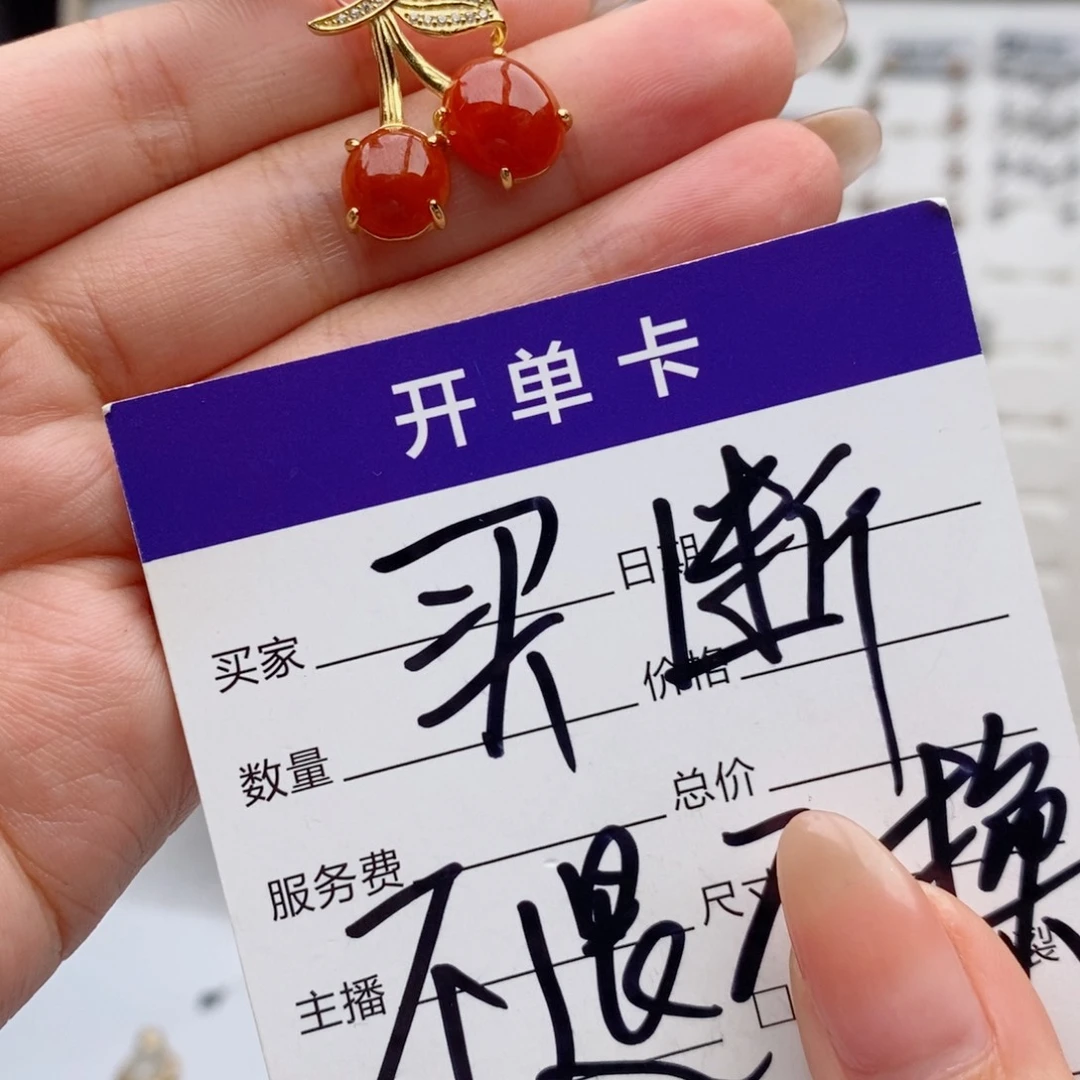 开单卡
买断
买家 日期
数量 价格
服务费 总价
不退不换
主播 尺寸
裂